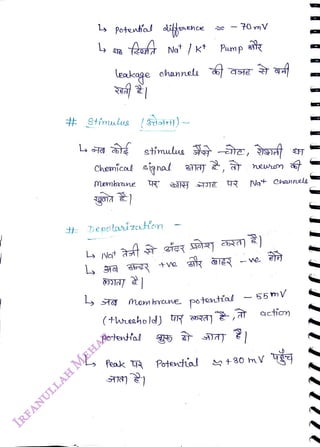 ↳ Potential difference ≈ - 70 mV
↳ यह स्थिति Na⁺ / K⁺ Pump और
leakage channels की वजह से बनी
रहती है|
# Stimulus (उत्तेजना) -
↳ जब कोई stimulus जैसे - चोट, रोशनी या
Chemical signal आता है, तो neuron की
membrane पर खास जगह पर Na⁺ Channels
खुलते हैं|
# Depolarization -
↳ Na⁺ तेजी से अंदर प्रवेश करता है|
↳ अब अन्दर +ve और बाहर -ve होने
लगता है|
↳ जब membrane potential - 55 mV
(threshold) पार करता है, तो action
potential शुरू हो जाता है|
↳ Peak पर Potential ≈ +30 mV पहुँच
जाता है|
IRFANULLAH MEHA